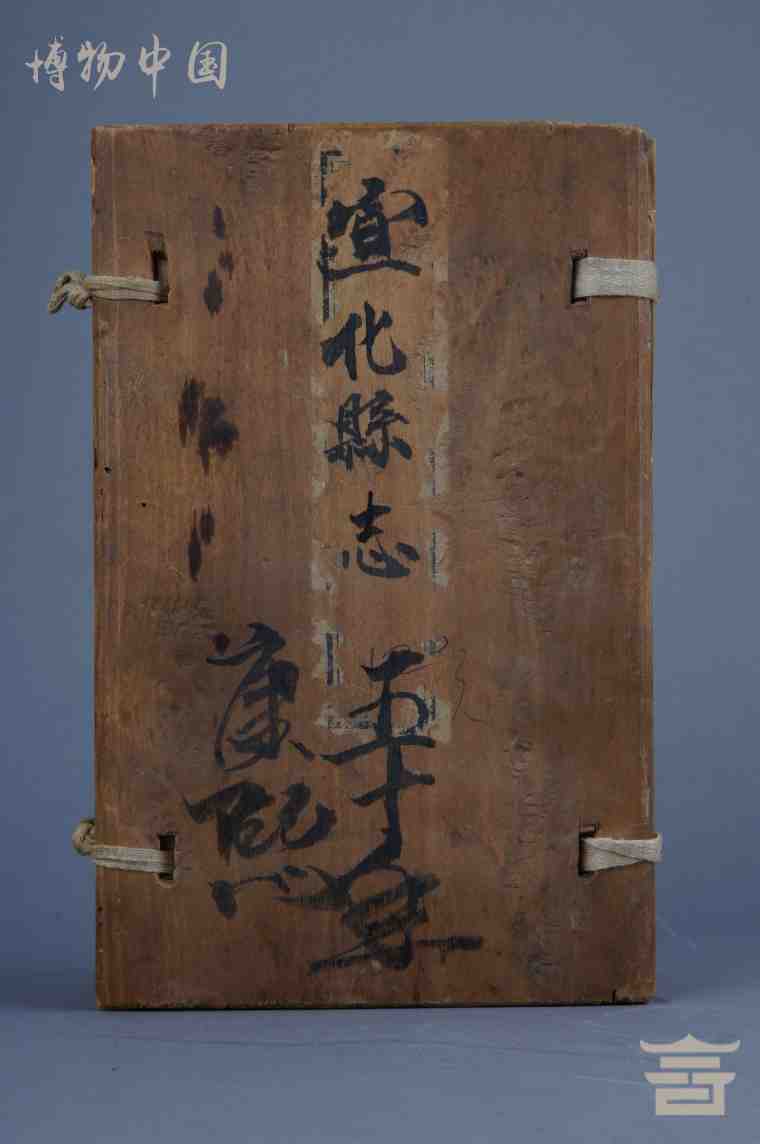 博物中国
宣化縣志
康熙
五十年